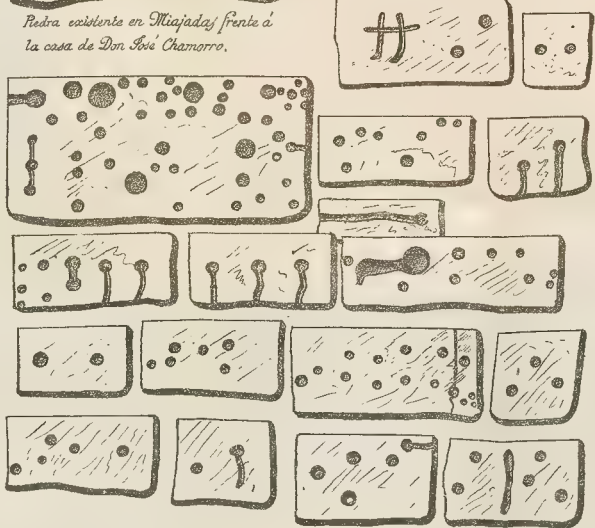 Piedra existente en Miajadas frente á
la casa de Don José Chamorro.